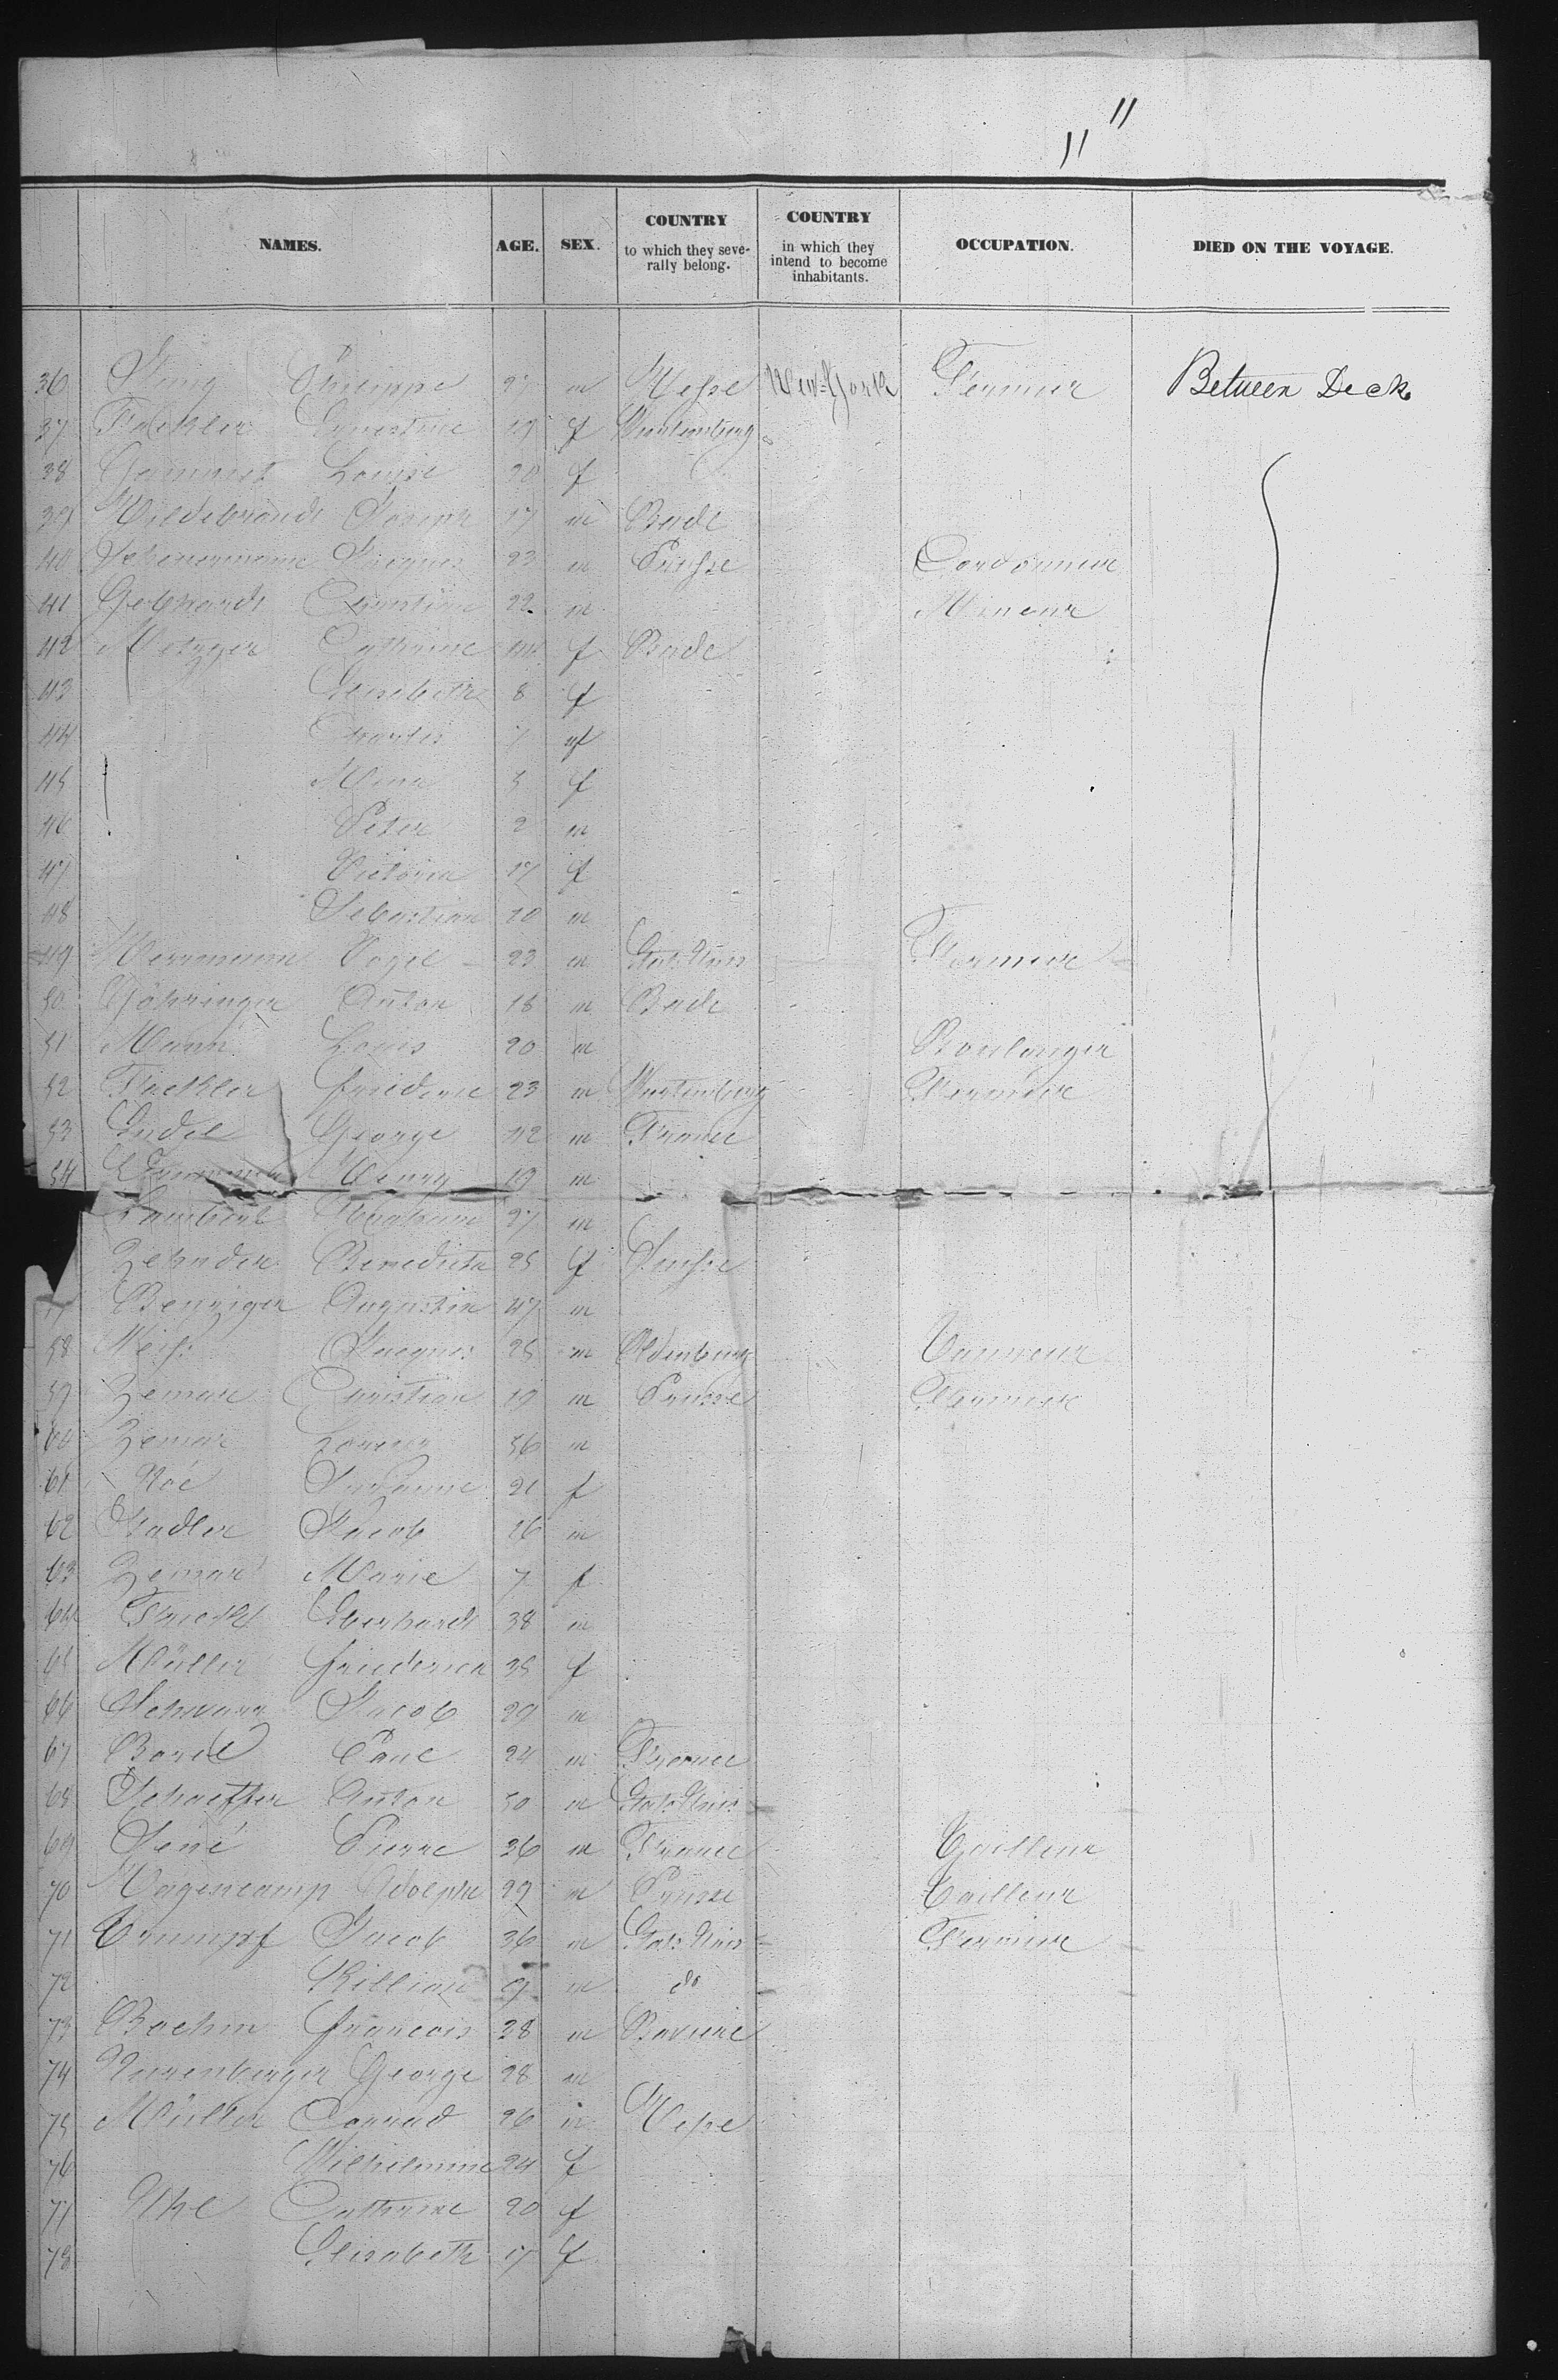 " "
NAMES. AGE. SEX. COUNTRY to which they severally belong. COUNTRY in which they intend to become inhabitants. OCCUPATION. DIED ON THE VOYAGE.
36 Philippe 27 m Hesse New-York Fermier Between Deck
37 Faehler Ernestine 19 f Wurtemberg
38 Louise 20 f
39 Hildebrandt Joseph 17 m Bade
40 Scheuermann Jacques 23 m Prusse Cordonnier
41 Gebhardt Christian 22 m Mineur
42 Metzger Catherine f Bade
43 Elisabeth 8 f
44 Charles 7
45 5 f
46 Peter 2 m
47 Victoria 17 f
48 Sebastian 10 m
49 Herrmann Vogel 23 m Etats Unis Fermier
50 Göhringer Anton 18 m Bade
51 Mann Louis 20 m Boulanger
52 Faehler friederic 23 m Wurtemberg Fermier
53 George 42 m France
54 Henry 19 m
Lambert 27 m
Zehnder Benedicta 25 f Suisse
Benziger Augustin 47 m
58 Weiss Jacques 25 m Oldenburg Tanneur
59 Zemar Christian 19 m Prusse Fermier
60 Zemar Lorenz 56 m
61 Noé Suzanne 21 f
62 Stadler Jacob 26 m
63 Zemar Marie 7 f
64 Eberhardt 38 m
65 Müller friederica 35 f
66 Schwarz Jacob 29 m
67 Borel Paul 24 m France
68 Schaeffer Anton 50 m Etats Unis
69 Séné Pierre 36 m France Tailleur
70 Hagencamp Adolphe 29 m Prusse Tailleur
71 Trumpf Jacob 36 m Etats Unis Fermier
72 Killian 9 m do
73 Boehm françois 38 m Baviere
74 Nurenberger George 28 m
75 Müller Conrad 26 m Hesse
76 Wilhelmine 24 f
77 Uhl Catherine 20 f
78 Elisabeth 17 f